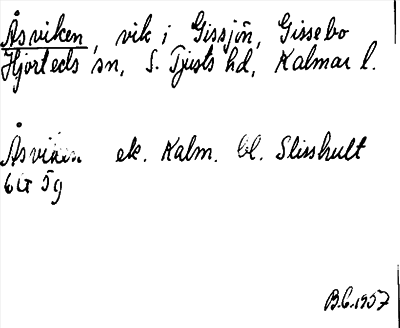 Åsviken, vik i Gissjön, Gissebo
Hjorteds sn, S. Tjusts hd, Kalmar l.
Åsviken ek. Kalm. bl. Slisshult
6G 5g
B.C. 1957